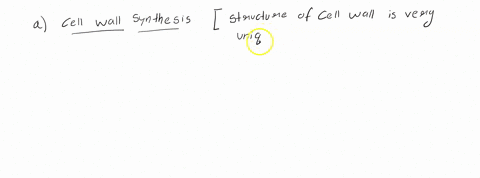 a) Cell wall synthesis [ structure of cell wall is very
uniq